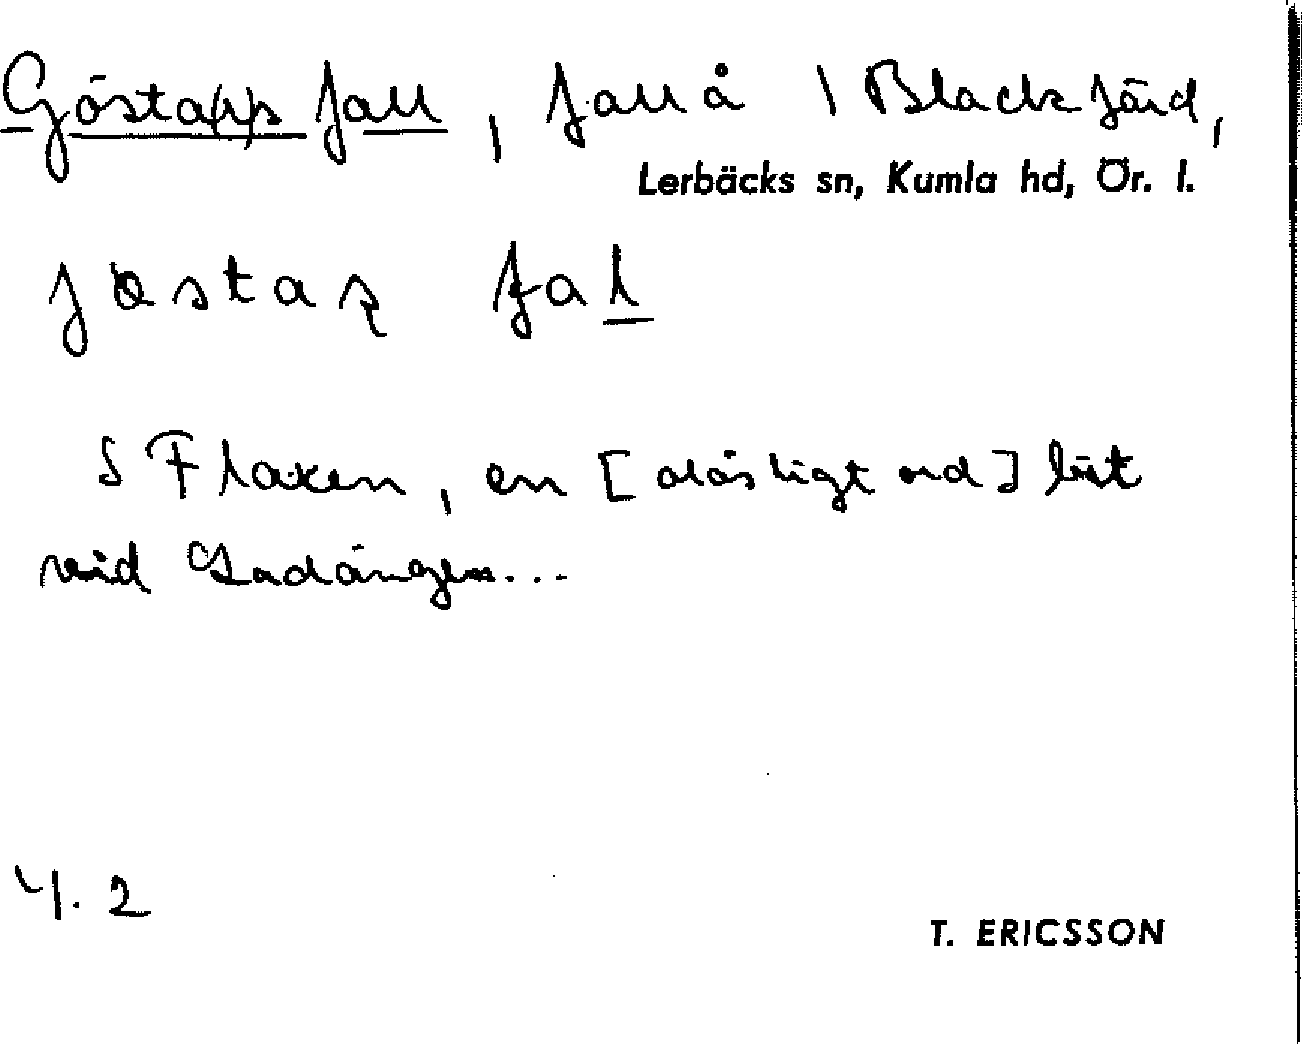 Göstapps fall, fall å \ Blackfärd,
Lerbäcks sn, Kumla hd, Ör. l.
jøstas fal
S Flaxen, en [oläsligt ord] bit
vid Ladängen...
4.2
T. ERICSSON